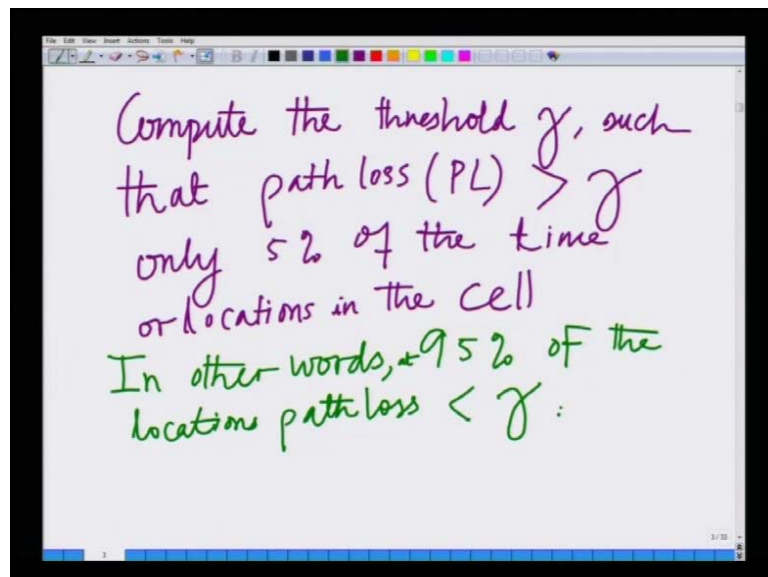 File Edit View Insert Actions Tools Help
Compute the threshold γ, such
that path loss (PL) > γ
only 5% of the time
or locations in the cell
In other words, at 95% of the
locations path loss < γ.
3
3/33